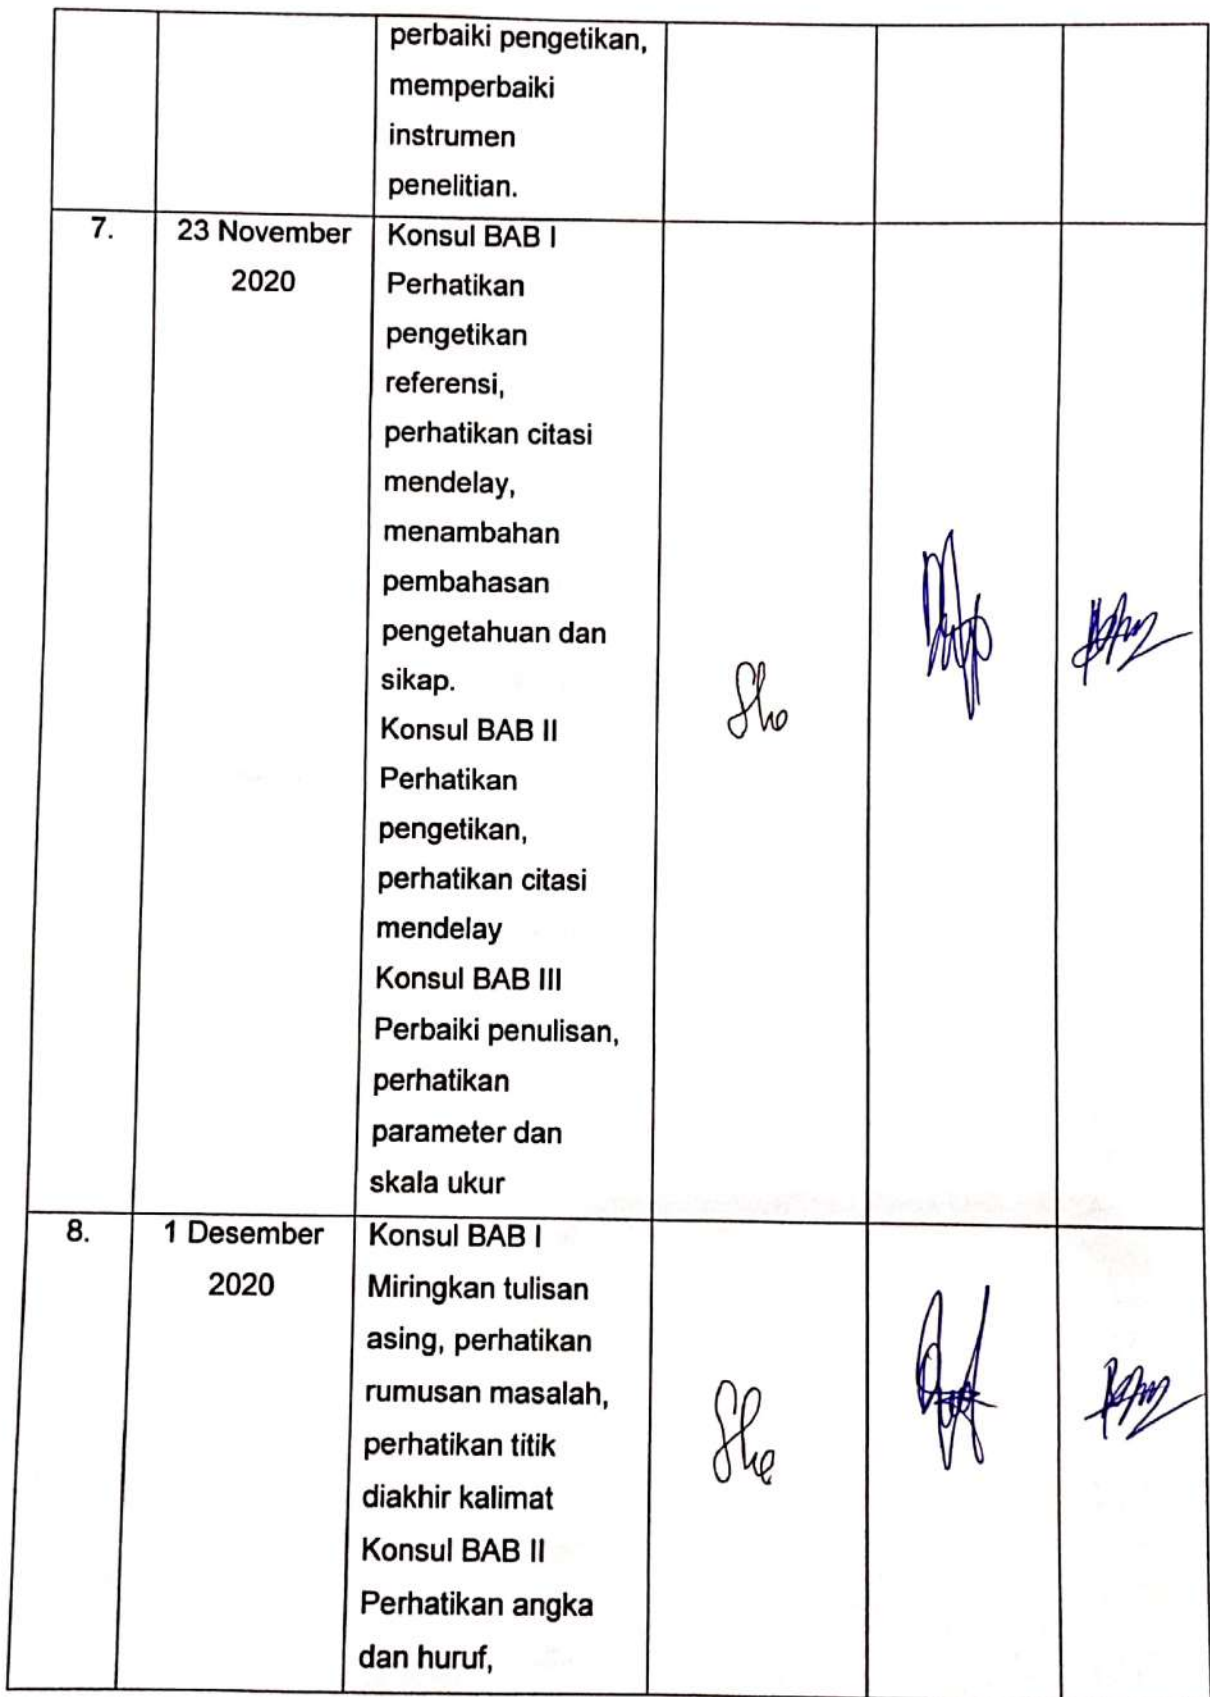 perbaiki pengetikan,
memperbaiki
instrumen
penelitian.
7.
23 November
2020
Konsul BAB I
Perhatikan
pengetikan
referensi,
perhatikan citasi
mendelay,
menambahan
pembahasan
pengetahuan dan
sikap.
Konsul BAB II
Perhatikan
pengetikan,
perhatikan citasi
mendelay
Konsul BAB III
Perbaiki penulisan,
perhatikan
parameter dan
skala ukur
8.
1 Desember
2020
Konsul BAB I
Miringkan tulisan
asing, perhatikan
rumusan masalah,
perhatikan titik
diakhir kalimat
Konsul BAB II
Perhatikan angka
dan huruf,